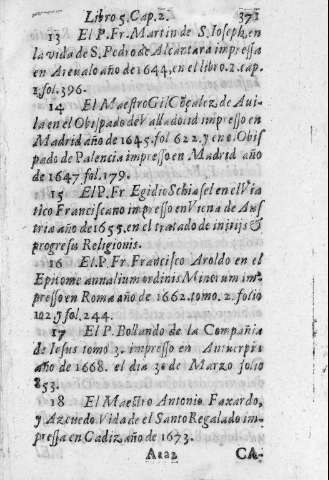 Libro 5. Cap. 2. 371
13 El P. Fr. Martin de S. Ioseph, en
la vida de S. Pedro de Alcantara impressa
en Areualo año de 1644, en el libro. 2. cap.
1. fol. 396.
14 El Maestro Gil Gõçalez de Aui-
la en el Obispado de Valladolid impresso en
Madrid año de 1645. fol 622. y en el Obis
pado de Palencia impresso en Madrid año
de 1647. fol. 179.
15 El P. Fr Egidio Schiasel en el Via
tico Franciscano impresso en Viena de Aus
tria año de 1655. en el tratado de initijs &
progressu Religionis.
16 El. P. Fr. Francisco Aroldo en el
Epitome annalium ordinis Minorum im-
presso en Roma año de 1662. tomo. 2. folio
102 y fol. 244.
17 El P. Bollando de la Compañia
de Iesus tomo 3. impresso en Antuerpia
año de 1668. el dia 30 de Marzo folio
853.
18 El Maestro Antonio Faxardo,
y Azeuedo Vida de el Santo Regalado im-
pressa en Cadiz año de 1673.
Aaa2 CA-